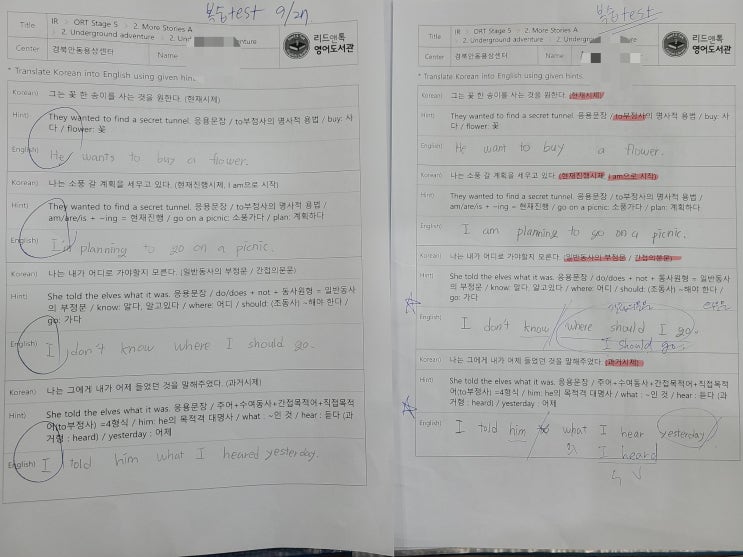 복습test 9/27
Title
IR > ORT Stage 5 > 2. More Stories A
> 2. Underground adventure > 2. Underground adventure
Center
경북안동용상센터
Name
리드앤톡
영어도서관
* Translate Korean into English using given hints.
Korean) 그는 꽃 한 송이를 사는 것을 원한다. (현재시제)
Hint) They wanted to find a secret tunnel. 응용문장 / to부정사의 명사적 용법 / buy: 사
다 / flower: 꽃
English) He wants to buy a flower.
Korean) 나는 소풍 갈 계획을 세우고 있다. (현재진행시제, I am으로 시작)
Hint) They wanted to find a secret tunnel. 응용문장 / to부정사의 명사적 용법 /
am/are/is + ~ing = 현재진행 / go on a picnic: 소풍가다 / plan: 계획하다
English) I is planning to go on a picnic.
Korean) 나는 내가 어디로 가야할지 모른다. (일반동사의 부정문 / 간접의문문)
Hint) She told the elves what it was. 응용문장 / do/does + not + 동사원형 = 일반동사
의 부정문 / know: 알다, 알고있다 / where: 어디 / should: (조동사) ~해야 한다 /
go: 가다
English) I don't know where I should go.
Korean) 나는 그에게 내가 어제 들었던 것을 말해주었다. (과거시제)
Hint) She told the elves what it was. 응용문장 / 주어+수여동사+간접목적어+직접목적
어(to부정사) =4형식 / him: he의 목적격 대명사 / what : ~인 것 / hear : 듣다 (과
거형 : heard) / yesterday : 어제
English) I told him what I heared yesterday.
복습test
Title
IR > ORT Stage 5 > 2. More Stories A
> 2. Underground adventure > 2. Underground
Center
경북안동용상센터
Name
리드앤톡
영어도서관
* Translate Korean into English using given hints.
Korean) 그는 꽃 한 송이를 사는 것을 원한다. (현재시제)
Hint) They wanted to find a secret tunnel. 응용문장 / to부정사의 명사적 용법 / buy: 사
다 / flower: 꽃
English) He want to buy a flower.
Korean) 나는 소풍 갈 계획을 세우고 있다. (현재진행시제, I am으로 시작)
Hint) They wanted to find a secret tunnel. 응용문장 / to부정사의 명사적 용법 /
am/are/is + ~ing = 현재진행 / go on a picnic: 소풍가다 / plan: 계획하다
English) I am planning to go on a picnic.
Korean) 나는 내가 어디로 가야할지 모른다. (일반동사의 부정문 / 간접의문문)
Hint) She told the elves what it was. 응용문장 / do/does + not + 동사원형 = 일반동사
의 부정문 / know: 알다, 알고있다 / where: 어디 / should: (조동사) ~해야 한다 /
go: 가다
English) I don't know where should I go.
I should go.
Korean) 나는 그에게 내가 어제 들었던 것을 말해주었다. (과거시제)
Hint) She told the elves what it was. 응용문장 / 주어+수여동사+간접목적어+직접목적
어(to부정사) =4형식 / him: he의 목적격 대명사 / what : ~인 것 / hear : 듣다 (과
거형 : heard) / yesterday : 어제
English) I told him what I hear yesterday
I heard
S V